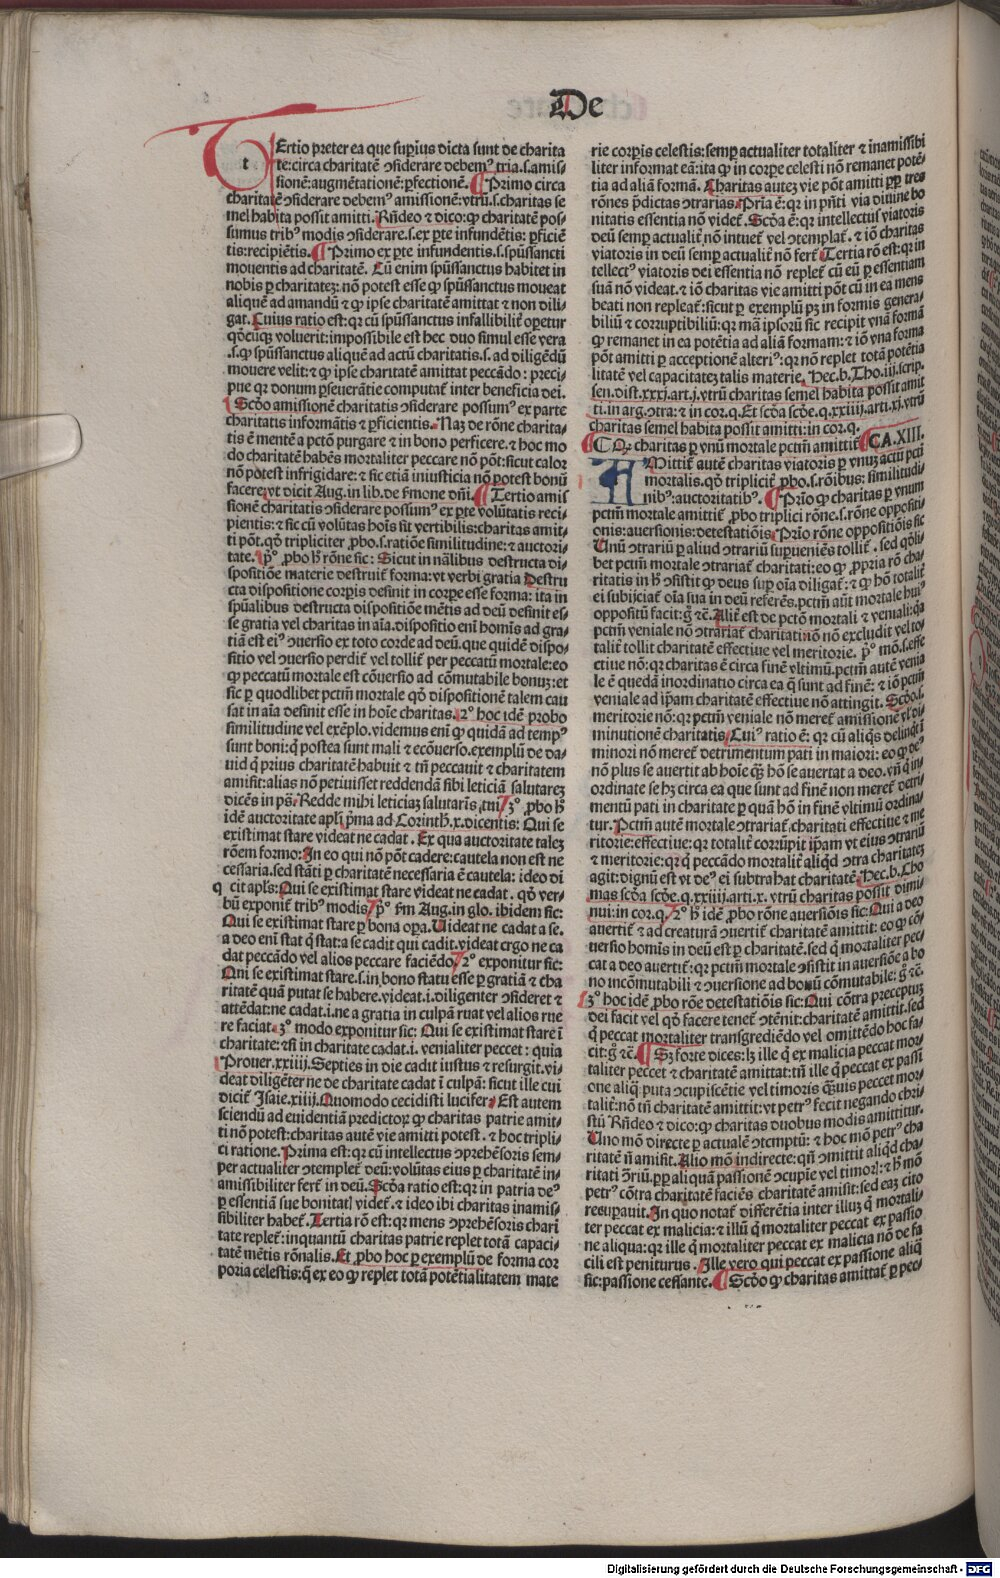 De
t
Ertio preter ea que sup̄ius dicta sunt de charita
te: circa charitatē ɔsiderare debemꝰ tria.s.amis⸗
sionē: augmētationē: ꝑfectionē. ¶ Primo circa
charitatē ɔsiderare debemꝰ amissionē: vtrū.s.charitas se
mel habita possit amitti. Rn̄deo ⁊ dico: ꝙ charitatē pos⸗
sumus tribꝰ modis ɔsiderare.s.ex ꝑte infundētis: ꝑficiē
tis: recipiētis. ¶ Primo ex ꝑte infundentis.s.spūssancti
mouentis ad charitatē. Cū enim spūssanctus habitet in
nobis ꝑ charitatez: nō potest esse ꝙ spūssanctus moueat
aliquē ad amandū ⁊ ꝙ ipse charitatē amittat ⁊ non dili⸗
gat. Cuius ratio est: qꝛ cū spūssanctus infallibilit̄ oꝑetur
qōcūqꝫ voluerit: impossibile est hec duo simul esse vera
.s.ꝙ spūssanctus aliquē ad actū charitatis.s. ad diligēdū
mouere velit: ⁊ ꝙ ipse charitatē amittat peccādo: preci⸗
pue qꝛ donum ꝑseuerātie computat̄ inter beneficia dei.
¶ Scd̄o amissionē charitatis ɔsiderare possumꝰ ex parte
charitatis informātis ⁊ ꝑficientis. Naz de rōne charita⸗
tis ē mentē a pctō purgare ⁊ in bono perficere. ⁊ hoc mo
do charitatē habēs mortaliter peccare nō pōt: sicut calor
nō potest infrigidare: ⁊ sic etiā iniusticia nō potest bonū
facere: vt dicit Aug. in lib. de s̄mone dn̄i. ¶ Tertio amis
sionē charitatis ɔsiderare possumꝰ ex ꝑte volūtatis reci⸗
pientis: ⁊ sic cū volūtas hoīs sit vertibilis: charitas amit⸗
ti pōt. qō tripliciter ꝓbo.s.ratiōe similitudine: ⁊ auctori⸗
tate. pꝰ ꝓbo h̄ rōne sic: Sicut in nālibus destructa di⸗
spositiōe materie destruit̄ forma: vt verbi gratia Destru
cta dispositione corꝑis definit in corꝑe esse forma: ita in
spūalibus destructa dispositiōe mētis ad deū definit es⸗
se gratia vel charitas in aīa. dispositio enī homīs ad gra⸗
tiā est eiꝰ ɔuersio ex toto corde ad deū. que quidē dispo⸗
sitio vel ɔuersio perdit̄ vel tollit̄ per peccatū mortale: eo
ꝙ peccatū mortale est cōuersio ad cōmutabile bonuz: et
sic ꝑ quodlibet pctm̄ mortale qō dispositionē talem cau
sat in aīa definit esse in hoīe charitas. 2ꝰ hoc idē probo
similitudine vel exēplo. videmus enī ꝙ quidā ad tempꝰ
sunt boni: q̄ postea sunt mali ⁊ ecōuerso. exemplū de da⸗
uid q̄ prius charitatē habuit ⁊ tn̄ peccauit ⁊ charitatem
amisit: alias nō petiuisset reddendā sibi leticiā salutarez
dicēs in ps̄. Redde mihi leticiaz salutaris tui. 3ꝰ ꝓbo h̄
idē auctoritate apl̓i p̄ma ad Corinth̄.x.dicentis: Qui se
existimat stare videat ne cadat. Ex qua auctoritate talez
rōem formo: In eo qui nō pōt cadere: cautela non est ne
cessaria. sed stāti ꝑ charitatē necessaria ē cautela: ideo di
q cit apl̓s: Qui se existimat stare videat ne cadat. qō ver⸗
bū exponit̄ tribꝰ modis. pꝰ s̄m Aug. in glo. ibidem sic:
Qui se existimat stare ꝑ bona oꝑa. Uideat ne cadat a se.
a deo enī stat q̄ stat: a se cadit qui cadit. videat ergo ne ca
dat peccādo vel alios peccare faciēdo. 2ꝰ exponitur sic:
Qui se existimat stare.s.in bono statu esse ꝑ gratiā ⁊ cha
ritatē quā putat se habere. videat.i.diligenter ɔsideret ⁊
attēdat: ne cadat.i.ne a gratia in culpā ruat vel alios rue
re faciat. 3ꝰ modo exponitur sic: Qui se existimat stare ī
charitate: ⁊ si in charitate cadat.i. venialiter peccet: quia
Prouer.xxiiij. Septies in die cadit iustus ⁊ resurgit. vi⸗
deat diligēter ne de charitate cadat ī culpā: sicut ille cui
dicit̄ Isaie.xiiij. Quomodo cecidisti lucifer. Est autem
sciendū ad euidentiā predictoꝝ ꝙ charitas patrie amit⸗
ti nō potest: charitas autē vie amitti potest. ⁊ hoc tripli⸗
ci ratione. Prima est: qꝛ cū intellectus ɔprehēsoris sem⸗
per actualiter ɔtemplet̄ deū: volūtas eius ꝑ charitatē in⸗
amissibiliter fert̄ in deū. Scd̄a ratio est: qꝛ in patria deꝰ
ꝑ essentiā sue bonitatꝭ videt̄. ⁊ ideo ibi charitas inamis⸗
sibiliter habet̄. Tertia rō est: qꝛ mens ɔprehēsoris chari
tate replet̄: inquantū charitas patrie replet totā capaci⸗
tatē mētis rōnalis. Et ꝓbo hoc ꝑ exemplū de forma cor
poria celestis: q̄ ex eo ꝙ replet totā potētialitatem mate
rie corꝑis celestis: semꝑ actualiter totaliter ⁊ inamissibi
liter informat eā: ita ꝙ in corꝑe celesti nō remanet potē⸗
tia ad aliā formā. Charitas autez vie pōt amitti ꝓꝑ tres
rōnes p̄dictas ɔtrarias. Pria ē: qꝛ in pn̄ti via diuine bo
nitatis essentia nō videt̄. Scd̄a ē: qꝛ intellectus viatoris
deū semꝑ actualit̄ nō intuet̄ vel ɔtemplat̄. ⁊ iō charitas
viatoris in deū semꝑ actualit̄ nō fert̄. Tertia rō est: qꝛ in
tellectꝰ viatoris dei essentia nō replet̄ cū eū ꝑ essentiam
suā nō videat. ⁊ iō charitas vie amitti pōt cū in ea mens
beati non repleat̄: sicut ꝑ exemplū pꝫ in formis genera⸗
biliū ⁊ corruptibiliū: qꝛ mā ipsorū sic recipit vnā formā
ꝙ remanet in ea potētia ad aliā formam: ⁊ iō vna forma
pōt amitti ꝑ acceptionē alteriꝰ: qꝛ nō replet totā potētia
litatē vel capacitatez talis materie. Hec.b.Tho.iij.scrip.
sen.dist.xxxj.art.j.vtrū charitas semel habita possit amit
ti. in arg.ɔtra: ⁊ in cor.q. Et scd̄a scd̄e.q.xxiiij.arti.xj.vtrū
charitas semel habita possit amitti: in cor.q.
¶ Qꝫ charitas ꝑ vnū mortale pctm̄ amittit̄. CA.XIII.
Amittit̄ autē charitas viatoris ꝑ vnuz actū pcti
mortalis. qō triplicit̄ ꝓbo.s.rōibus: similitudi⸗
nibꝰ: auctoritatibꝰ. ¶ Prīo ꝙ charitas ꝑ vnum
pctm̄ mortale amittit̄ ꝓbo triplici rōne.s.rōne oppositi⸗
onis: auersionis: detestatiōis. Prīo rōne oppositiōis sic
Unū ɔtrariū ꝑ aliud ɔtrariū suꝑueniēs tollit̄. sed qōli⸗
bet pctm̄ mortale ɔtrariat̄ charitati: eo ꝙ ꝓpria rō cha⸗
ritatis in h̄ ɔsistit ꝙ deus suꝑ oīa diligat̄: ⁊ ꝙ hō totalit̄
ei subijciat̄ oīa sua in deū referēs. pctm̄ aūt mortale huiꝰ
oppositū facit: g̊ ⁊c̄. Alit̄ est de pctō mortali ⁊ veniali: qꝛ
pctm̄ veniale nō ɔtrariat̄ charitati: nō nō excludit vel to⸗
talit̄ tollit charitatē effectiue vel meritorie. pꝰ mō.s.effe
ctiue nō: qꝛ charitas ē circa finē vltimū. pctm̄ autē venia
le ē quedā inordinatio circa ea q̄ sunt ad finē: ⁊ iō pctm̄
veniale ad ip̄am charitatē effectiue nō attingit. Scd̄o.s.
meritorie nō: qꝛ pctm̄ veniale nō meret̄ amissionē vl̓ di⸗
minutionē charitatis. Cuiꝰ ratio ē: qꝛ cū aliq̄s delinqt ī
minori nō meret̄ detrimentum pati in maiori: eo ꝙ deꝰ
nō plus se auertit ab hoīe qꝫ hō se auertat a deo. vn̄ q̄ in
ordinate se hꝫ circa ea que sunt ad finē non meret̄ detri⸗
mentū pati in charitate ꝑ quā hō in finē vltimū ordina⸗
tur. Pctm̄ autē mortale ɔtrariat̄ charitati effectiue ⁊ me
ritorie: effectiue: qꝛ totalit̄ corrūpit ip̄am vt eius ɔtrariū
⁊ meritorie: qꝛ q̄ peccādo mortalit̄ aliqd̄ ɔtra charitatez
agit: dignū est vt deꝰ ei subtrahat charitatē. Hec.b.Tho
mas scd̄a scd̄e.q.xxiiij.arti.x. vtrū charitas possit dimi⸗
nui: in cor.q. 2ꝰ h̄ idē ꝓbo rōne auersiōis sic: Qui a deo
auertit̄ ⁊ ad creaturā ɔuertit̄ charitatē amittit: eo ꝙ cō⸗
uersio homīs in deū est ꝑ charitatē. sed q̄ mortaliter pec⸗
cat a deo auertit̄: qꝛ pctm̄ mortale ɔsistit in auersiōe a bo
no incōmutabili ⁊ ɔuersione ad bonū cōmutabile: g̊ ⁊c̄.
3ꝰ hoc idē ꝓbo rōe detestatiōis sic: Qui cōtra preceptuz
dei facit vel qō facere tenet̄ ɔtēnit: charitatē amittit. sed
q̄ peccat mortaliter transgrediēdo vel omittēdo hoc fa⸗
cit: g̊ ⁊c̄. ¶ Sꝫ forte dices: lꝫ ille q̄ ex malicia peccat mor⸗
taliter peccet ⁊ charitatē amittat: tn̄ ille q̄ peccat ex passi
one aliq̄ puta ɔcupiscētie vel timoris qꝫuis peccet mor⸗
talit̄: nō tn̄ charitatē amittit: vt petrꝰ fecit negando chri⸗
stū. Rn̄deo ⁊ dico: ꝙ charitas duobus modis amittitur.
Uno mō directe ꝑ actualē ɔtemptū: ⁊ hoc mō petrꝰ cha
ritatē n̄ amisit. Alio mō indirecte: qn̄ ɔmittit aliqd̄ cha⸗
ritati ɔ̄riū. ꝓꝑ aliquā passionē ɔcupīe vel timorꝭ: ⁊ h̄ mō
petrꝰ cōtra charitatē faciēs charitatē amisit: sed eaꝫ cito
recuꝑauit. In quo notat̄ differētia inter illuꝫ q̄ mortali⸗
ter peccat ex malicia: ⁊ illū q̄ mortaliter peccat ex passio
ne aliqua: qꝛ ille q̄ mortaliter peccat ex malicia nō de fa
cili est peniturus. Ille vero qui peccat ex passione aliq̄
sic: passione cessante. ¶ Scd̄o ꝙ charitas amittat̄ ꝑ pec⸗
Digitalisierung gefördert durch die Deutsche Forschungsgemeinschaft - DFG